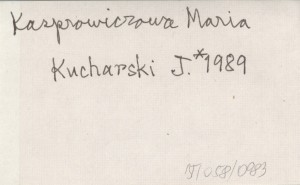 Kasprowiczowa Maria
Kucharski J.*1989